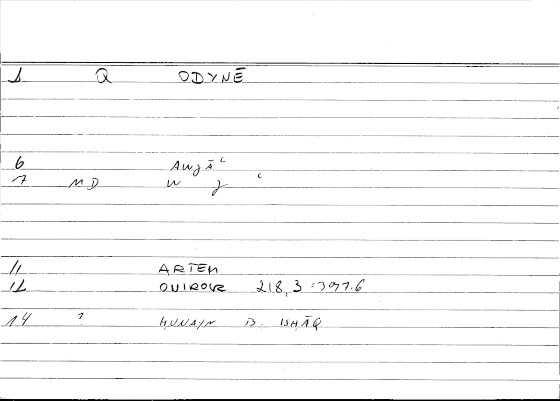 1 Q ODYNĒ
6 Awǧāʿ
7 MD w ǧ ʿ
11 ARTEM
12 218,3 = 397.6
14 ? HUNAYN B. ISHĀQ